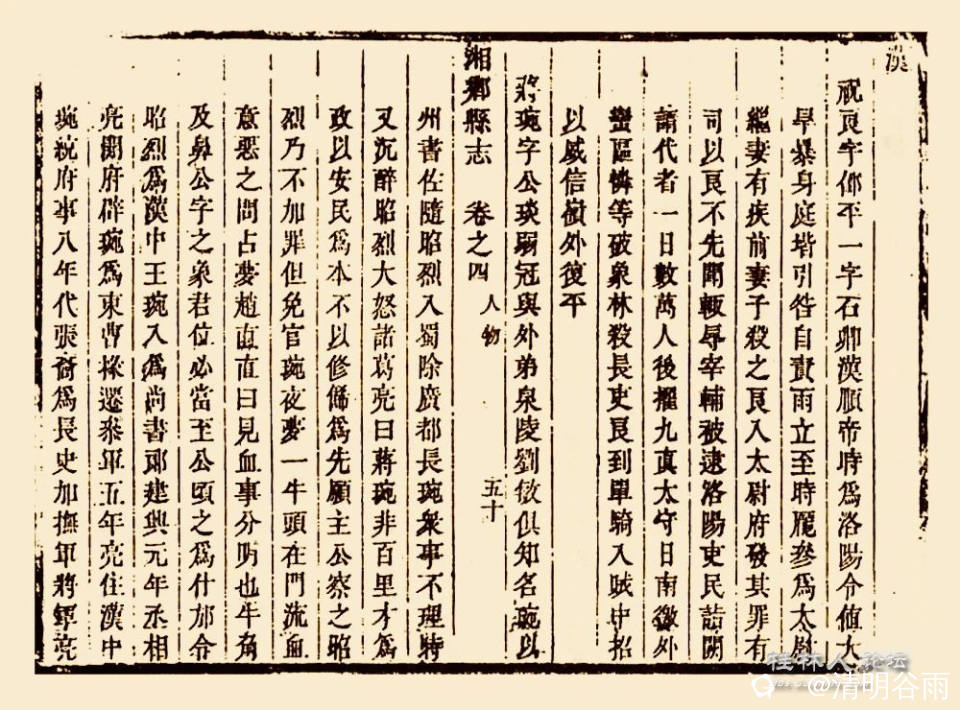 漢
祝良字邵平一字石卿漢順帝時爲洛陽令值大
旱暴身庭堦引咎自責雨立至時龐參爲太尉
繼妻有疾前妻子殺之良入太尉府發其罪有
司以良不先聞輒辱宰輔被逮洛陽吏民詣闕
請代者一日數萬人後擢九真太守日南徼外
蠻區憐等破象林殺長吏良到單騎入賊中招
以威信嶺外復平
湘鄉縣志 卷之四 人物 五十
蔣琬字公琰弱冠與外弟泉陵劉敏俱知名琬以
州書佐隨昭烈入蜀除廣都長琬衆事不理時
又沉醉昭烈大怒諸葛亮曰蔣琬非百里才爲
政以安民爲本不以修飾爲先願主公察之昭
烈乃不加罪但免官琬夜夢一牛頭在門流血
意惡之問占夢趙直直曰見血事分明也牛角
及鼻公字之象君位必當至公頃之爲什邡令
昭烈爲漢中王琬入爲尚書郎建興元年丞相
亮開府辟琬爲東曹掾遷叅軍五年亮住漢中
琬統府事八年代張裔爲長史加撫軍將軍亮
桂林人论坛
@清明谷雨